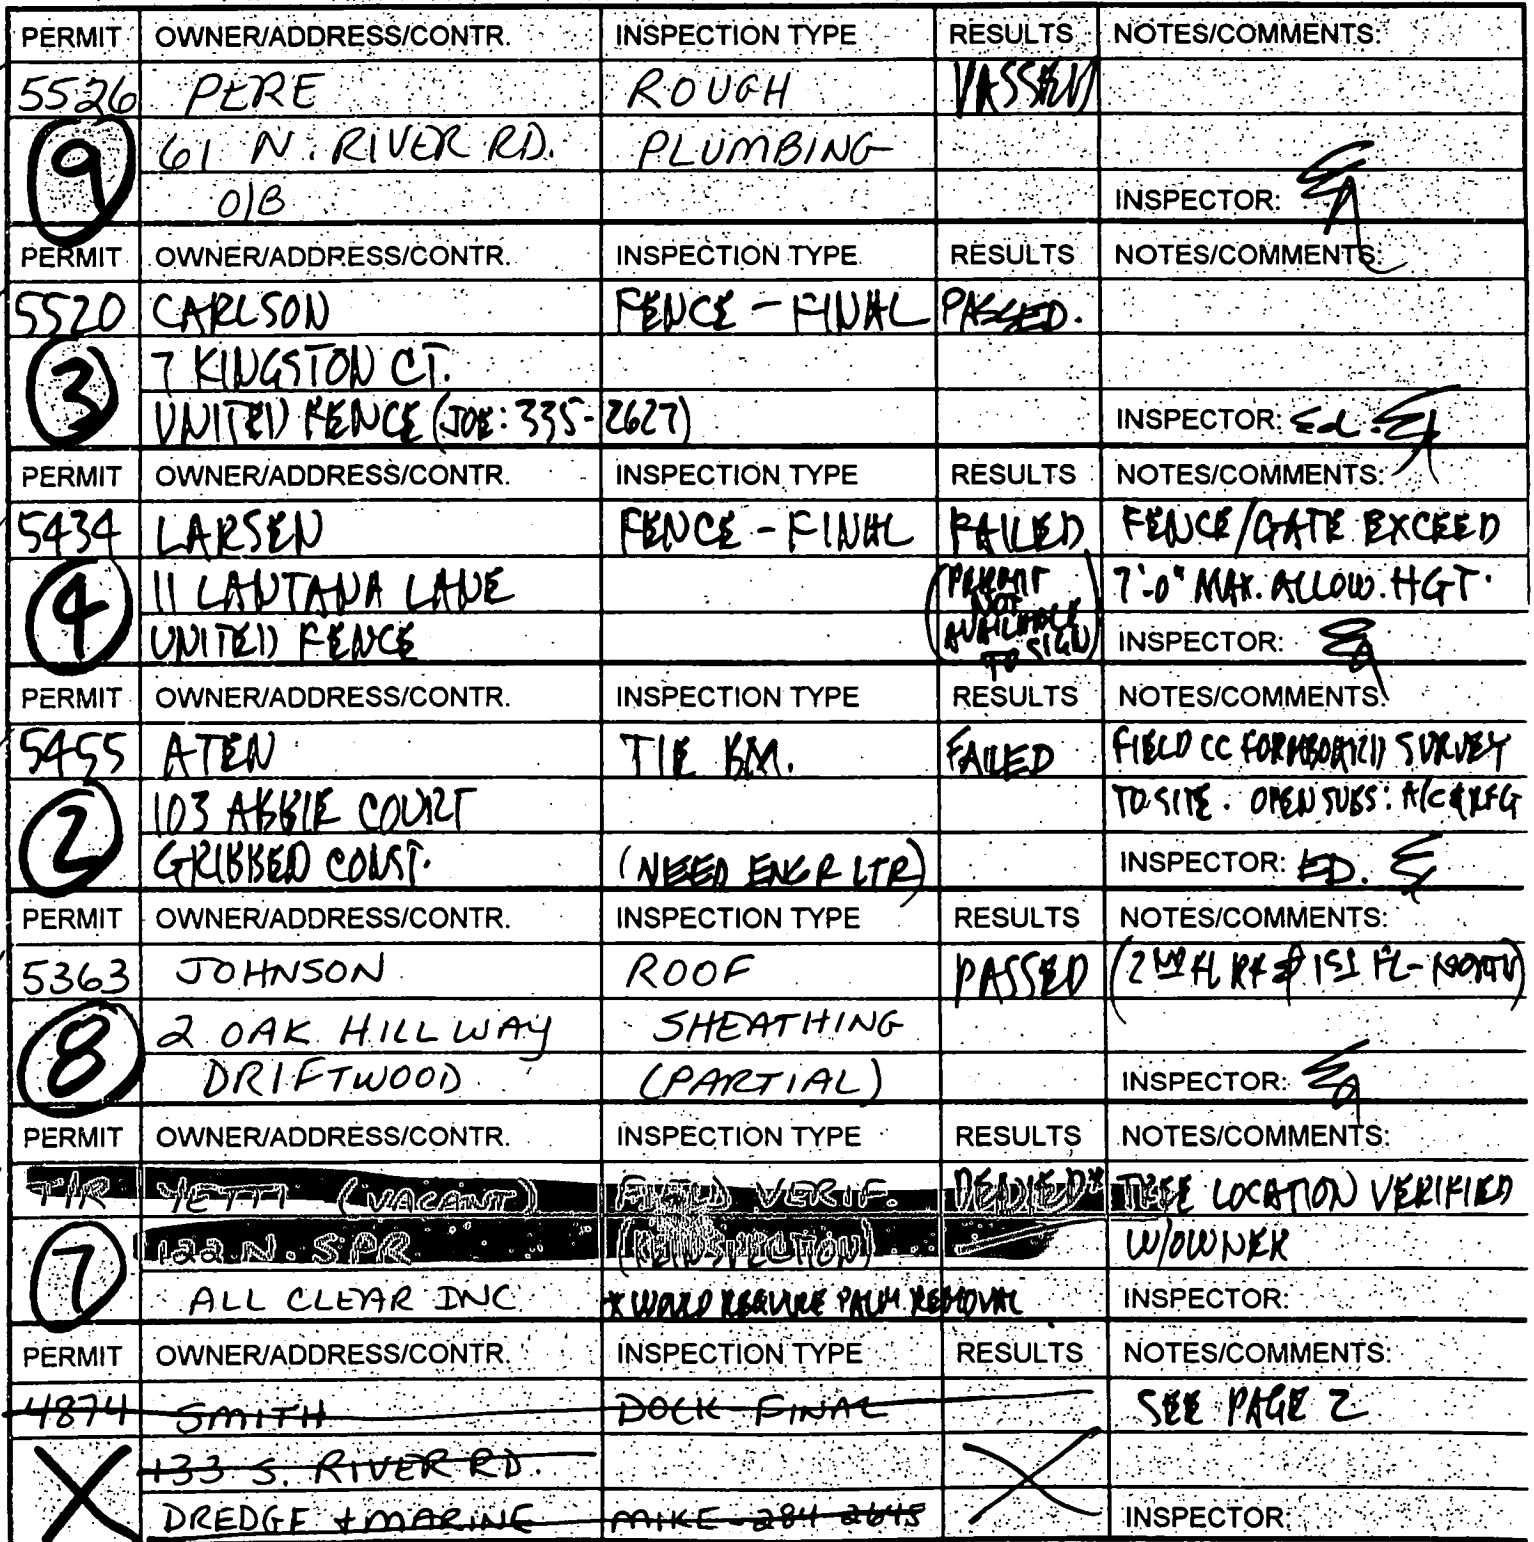 PERMIT OWNER/ADDRESS/CONTR. INSPECTION TYPE RESULTS NOTES/COMMENTS:
5526 PERE ROUGH PASSED
9 61 N. RIVER RD. PLUMBING
O/B INSPECTOR:
PERMIT OWNER/ADDRESS/CONTR. INSPECTION TYPE RESULTS NOTES/COMMENTS:
5520 CARLSON FENCE - FINAL PASSED.
3 7 KINGSTON CT.
UNITED FENCE (JOE: 335-2627) INSPECTOR:
PERMIT OWNER/ADDRESS/CONTR. INSPECTION TYPE RESULTS NOTES/COMMENTS:
5434 LARSEN FENCE - FINAL FAILED FENCE/GATE EXCEED
4 11 LANTANA LANE (PERMIT NOT AVAILABLE TO SIGN) 7'-0" MAX. ALLOW. HGT.
UNITED FENCE INSPECTOR:
PERMIT OWNER/ADDRESS/CONTR. INSPECTION TYPE RESULTS NOTES/COMMENTS:
5455 ATEN TIE BM. FAILED FIELD CC FORMBOARD SURVEY
2 103 ABBIE COURT TO SITE. OPEN SUBS: A/C & RFG
GRIBBEN CONST. (NEED ENGR LTR) INSPECTOR: ED.
PERMIT OWNER/ADDRESS/CONTR. INSPECTION TYPE RESULTS NOTES/COMMENTS:
5363 JOHNSON ROOF PASSED (2ND FL RF & 1ST FL - NORTH)
8 2 OAK HILL WAY SHEATHING
DRIFTWOOD (PARTIAL) INSPECTOR:
PERMIT OWNER/ADDRESS/CONTR. INSPECTION TYPE RESULTS NOTES/COMMENTS:
T/R YETTI (VACANT) FIELD VERIF. DENIED* TREE LOCATION VERIFIED
7 122 N. SPR (REINSPECTION) W/OWNER
ALL CLEAR INC * WOULD REQUIRE PALM REMOVAL INSPECTOR:
PERMIT OWNER/ADDRESS/CONTR. INSPECTION TYPE RESULTS NOTES/COMMENTS:
4874 SMITH DOCK-FINAL SEE PAGE 2
X 133 S. RIVER RD.
DREDGE + MARINE MIKE-284-2645 INSPECTOR: